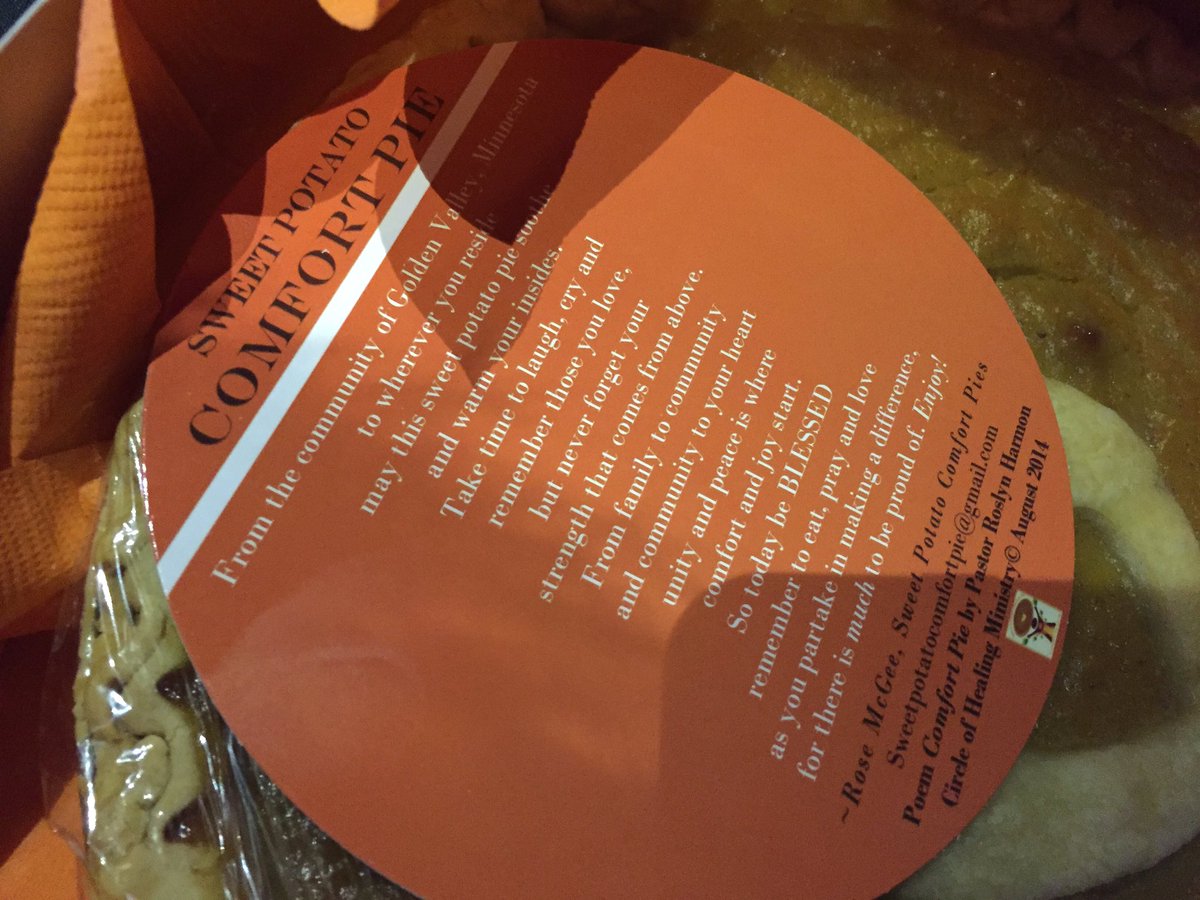 SWEET POTATO
COMFORT PIE
From the community of Golden Valley, Minnesota
to wherever you reside
may this sweet potato pie soothe
and warm your insides.
Take time to laugh, cry and
remember those you love,
but never forget your
strength that comes from above.
From family to community
and community to your heart
unity and peace is where
comfort and joy start.
So today be BLESSED
remember to eat, pray and love
as you partake in making a difference,
for there is much to be proud of. Enjoy!
~Rose McGee, Sweet Potato Comfort Pies
Sweetpotatocomfortpie@gmail.com
Poem Comfort Pie by Pastor Roslyn Harmon
Circle of Healing Ministry© August 2014